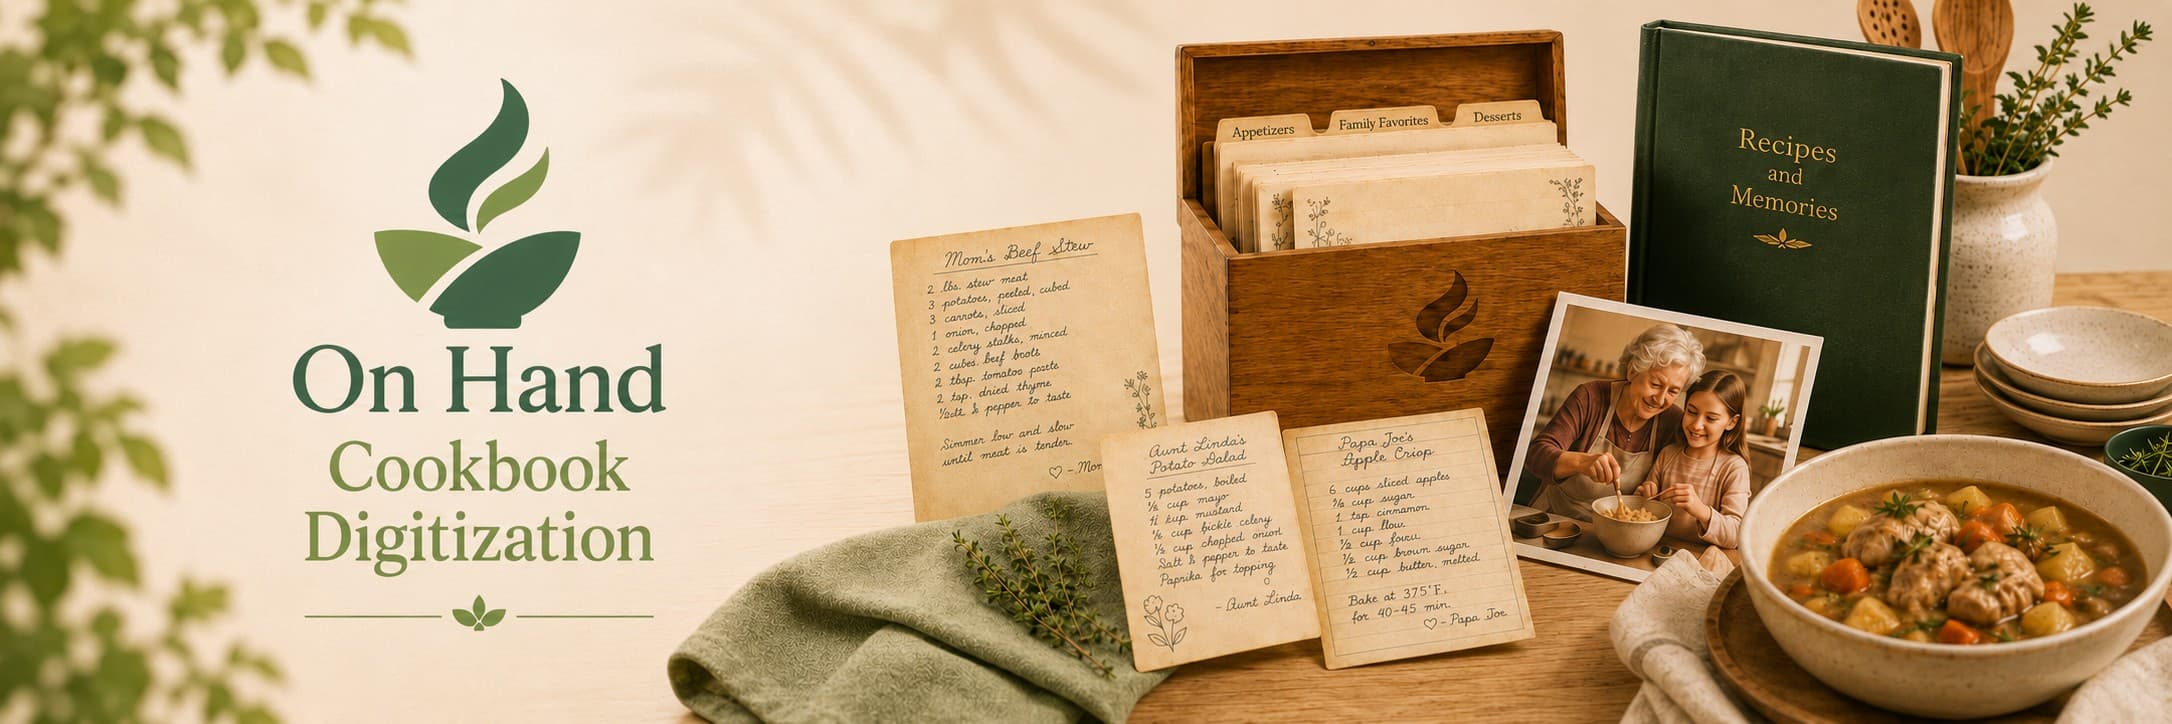 On Hand
Cookbook
Digitization
Mom's Beef Stew
2 lbs. stew meat
3 potatoes, peeled, cubed
3 carrots, sliced
1 onion, chopped
2 celery stalks, minced
2 cubes beef
2 tbsp. tomatoo
2 tsp. dried thyme
& pepper to taste
Simmer low and slow
until meat is tender.
Aunt Linda's
Potato Salad
5 potatoes, boiled
½ cup mayo
cup mustard
cup celery
½ cup chopped onion
Salt & pepper to taste
Paprika for topping
- Aunt Linda
Papa Joe's
Apple
6 cups sliced apples
cup sugar
1 tsp cinnamon
1 cup
½ cup
½ cup brown sugar
½ cup butter, melted
Bake at 375°F.
for 40-45 min.
- Papa Joe
Appetizers
Family Favorites
Desserts
Recipes
and
Memories